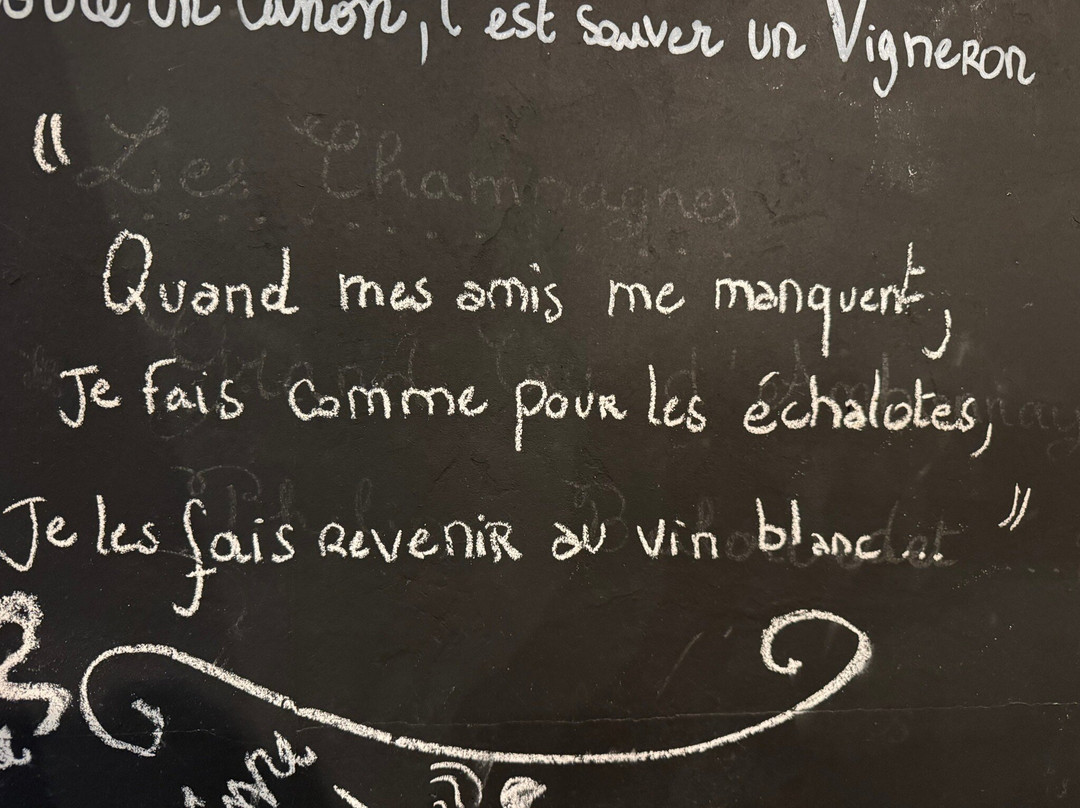 un canon, c'est sauver un Vigneron
"
Les Champagnes
Quand mes amis me manquent,
Je fais comme pour les échalotes,
Je les fais revenir au vin blanc... "